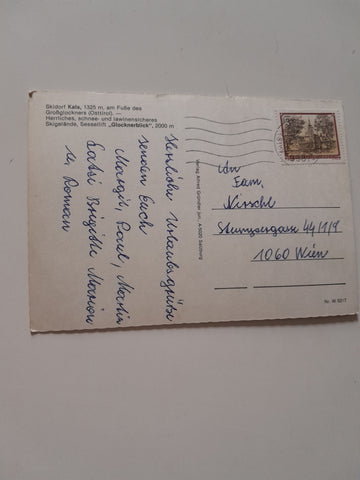 Skidorf Kals, 1325 m, am Fuße des
Großglockners (Osttirol). —
Herrliches, schnee- und lawinensicheres
Skigelände, Sessellift „Glocknerblick“, 2000 m
Herzliche Urlaubsgrüße
senden Euch
Margit, Paul, Martin
Brigitte Marion
u. Roman
Verlag Alfred Gründler jun., A-5020 Salzburg
An
Fam.
Kirschl
Stumpergasse 44/1/9
1060 Wien
Nr. W 5217